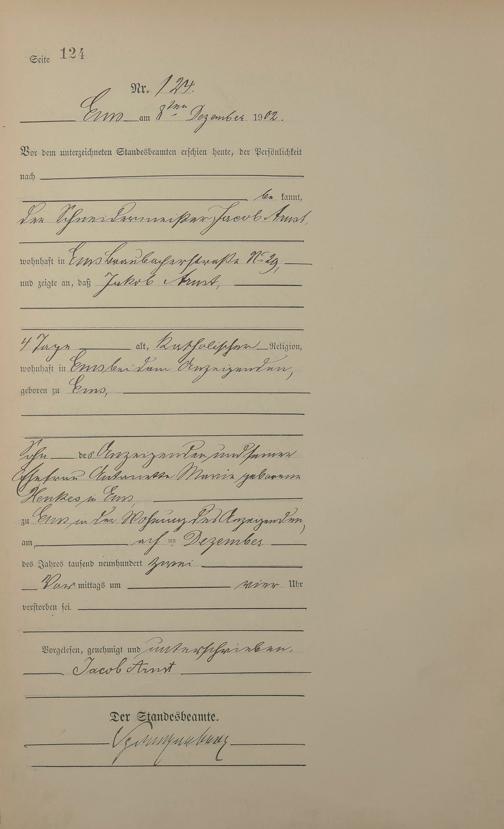 Seite 124
Nr. 124.
Ems am 8ten Dezember 1902.
Vor dem unterzeichneten Standesbeamten erschien heute, der Persönlichkeit
nach
be kannt,
der Schneidermeister Jacob Arnst
wohnhaft in Ems Braubacherstraße No 29,
und zeigte an, daß Jakob Arnst,
4 Tage alt, katholischer Religion,
wohnhaft in Ems bei dem Anzeigenden,
geboren zu Ems,
Sohn des Anzeigenden und seiner
Ehefrau Antonette Marie geborene
Henkes in Ems
zu Ems, in der Wohnung des Anzeigenden,
am acht en Dezember
des Jahres tausend neunhundert zwei
Vor mittags um vier Uhr
verstorben sei.
Vorgelesen, genehmigt und unterschrieben.
Jacob Arnst
Der Standesbeamte.